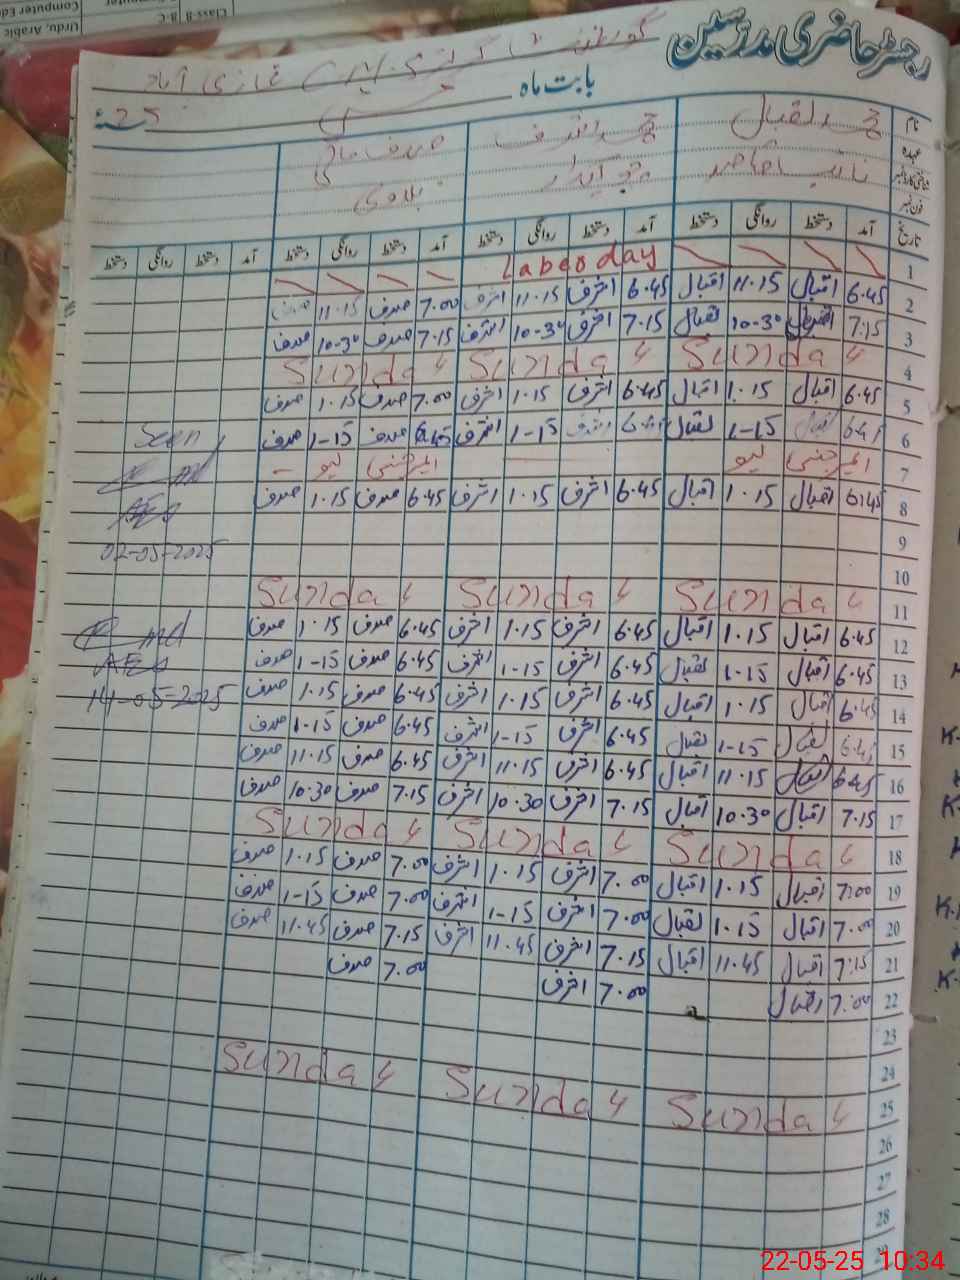 رجسٹر حاضری مدرسین
بابت ماہ
25
نام محمد اقبال محمد اشرف صدف
عہدہ نائب قاصد چوکیدار
شناختی کارڈ نمبر
فون نمبر
تاریخ آمد دستخط روانگی دستخط آمد دستخط روانگی دستخط آمد دستخط روانگی دستخط آمد دستخط روانگی دستخط
1 Labor day
2 6.45 اقبال 11.15 اقبال 6.45 اشرف 11.15 اشرف 7.00 صدف 11.15 صدف
3 7.15 اقبال 10-30 اقبال 7.15 اشرف 10-30 اشرف 7.15 صدف 10-30 صدف
4 Sunday Sunday Sunday
5 6.45 اقبال 1.15 اقبال 6.45 اشرف 1.15 اشرف 7.00 صدف 1.15 صدف
6 6.45 اقبال 1-15 اقبال 6.45 اشرف 1-15 اشرف 6.45 صدف 1-15 صدف
7 ایمرجنسی لیو ایمرجنسی لیو
8 6.45 اقبال 1.15 اقبال 6.45 اشرف 1.15 اشرف 6.45 صدف 1.15 صدف
9
10
11 Sunday Sunday Sunday
12 6.45 اقبال 1.15 اقبال 6.45 اشرف 1.15 اشرف 6.45 صدف 1.15 صدف
13 6.45 اقبال 1-15 اقبال 6.45 اشرف 1-15 اشرف 6.45 صدف 1-15 صدف
14 6.45 اقبال 1.15 اقبال 6.45 اشرف 1.15 اشرف 6.45 صدف 1.15 صدف
15 6.45 اقبال 1-15 اقبال 6.45 اشرف 1-15 اشرف 6.45 صدف 1-15 صدف
16 6.45 اقبال 11.15 اقبال 6.45 اشرف 11.15 اشرف 6.45 صدف 11.15 صدف
17 7.15 اقبال 10.30 اقبال 7.15 اشرف 10.30 اشرف 7.15 صدف 10.30 صدف
18 Sunday Sunday Sunday
19 7.00 اقبال 1.15 اقبال 7.00 اشرف 1.15 اشرف 7.00 صدف 1.15 صدف
20 7.00 اقبال 1.15 اقبال 7.00 اشرف 1-15 اشرف 7.00 صدف 1-15 صدف
21 7.15 اقبال 11.45 اقبال 7.15 اشرف 11.45 اشرف 7.15 صدف 11.45 صدف
22 7.00 اقبال 7.00 اشرف 7.00 صدف
23
24
25 Sunday Sunday Sunday
26
27
28
29
Seen
02-05-2025
AEO
14-05-2025
Urdu, Arabic
Computer Edu
Class 8
22-05-25 10:34